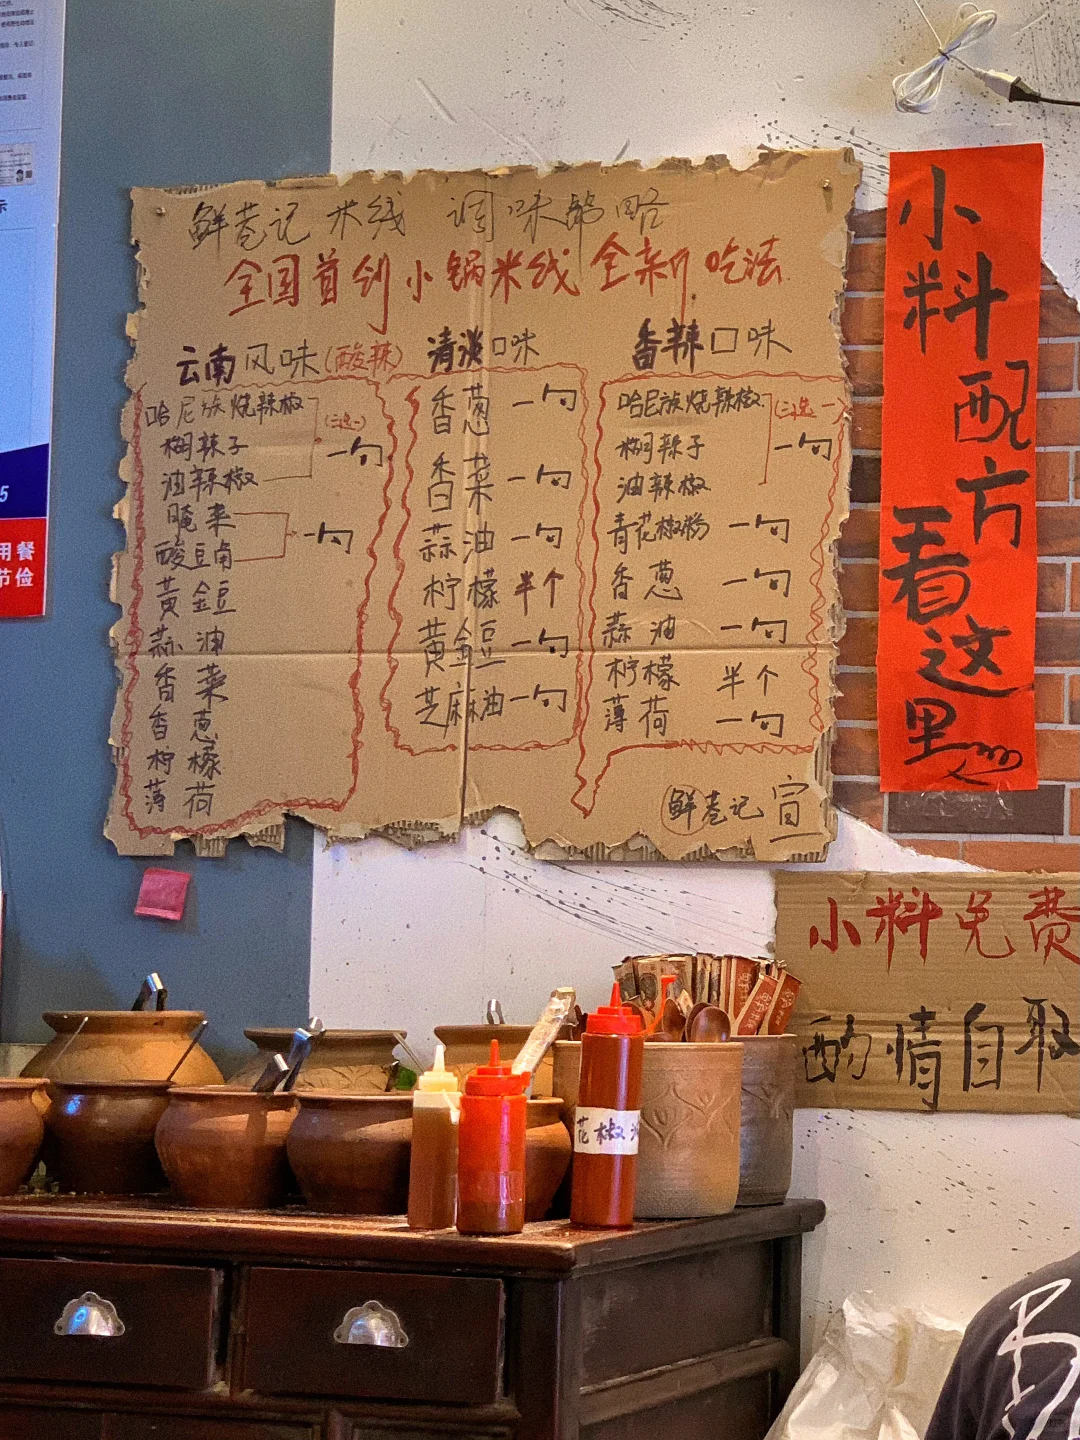 鲜巷记 米线 调味攻略
全国首创小锅米线全新吃法
云南风味(酸辣)
哈尼族烧辣椒
糊辣子
油辣椒
(三选一)
一勺
腌菜
酸豆角
一勺
黄金豆
蒜油
香菜
香葱
柠檬
薄荷
清淡口味
香葱 一勺
香菜 一勺
蒜油 一勺
柠檬 半个
黄金豆 一勺
芝麻油 一勺
香辣口味
哈尼族烧辣椒
糊辣子
油辣椒
(三选一)
一勺
青花椒粉 一勺
香葱 一勺
蒜油 一勺
柠檬 半个
薄荷 一勺
鲜巷记 宣
小料配方
看这里
小料免费
酌情自取
花椒
用餐
节俭